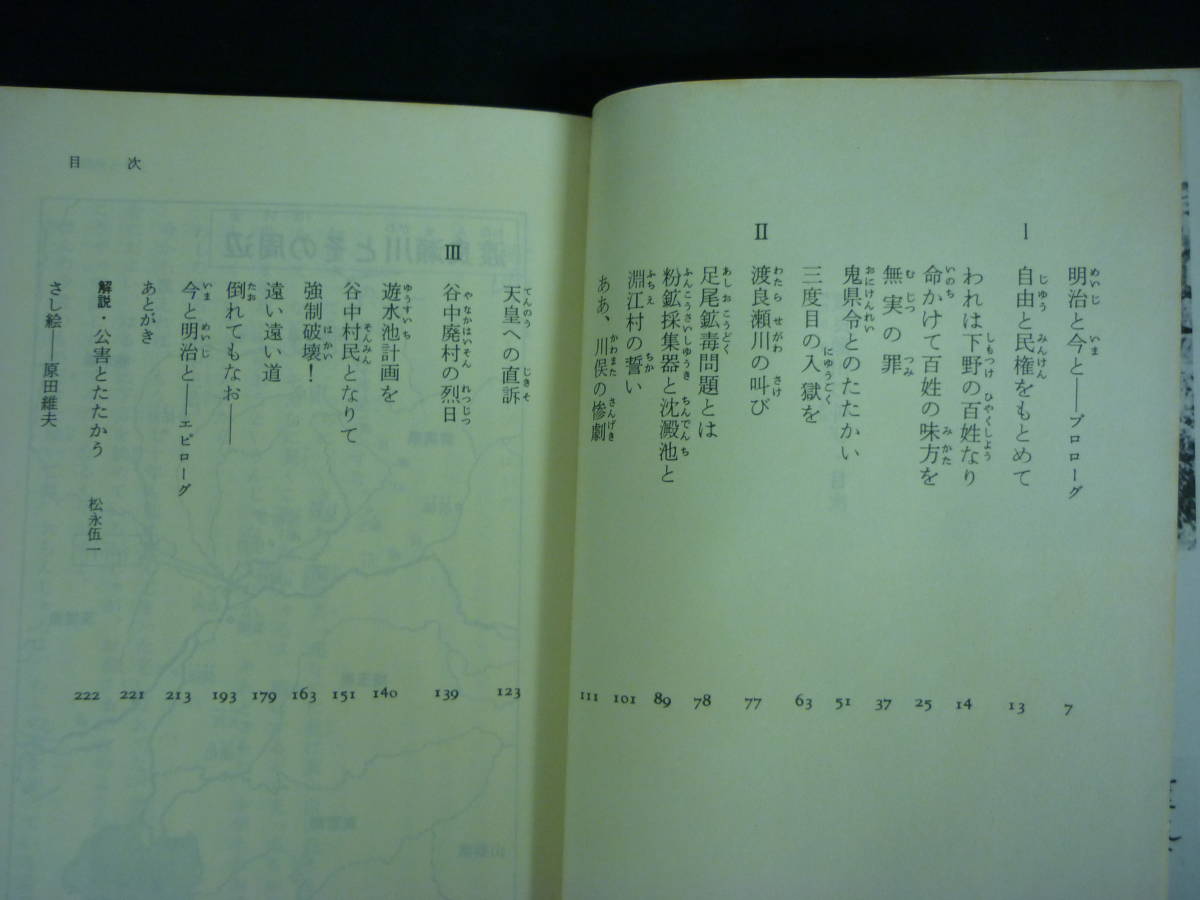 明治と今と――プロローグ 7
Ⅰ 自由と民権をもとめて 13
われは下野の百姓なり 14
命かけて百姓の味方を 25
無実の罪 37
鬼県令とのたたかい 51
三度目の入獄を 63
Ⅱ 渡良瀬川の叫び 77
足尾鉱毒問題とは 78
粉鉱採集器と沈澱池と 89
淵江村の誓い 101
ああ、川俣の惨劇 111
天皇への直訴 123
Ⅲ 谷中廃村の烈日 139
遊水池計画を 140
谷中村民となりて 151
強制破壊! 163
遠い遠い道 179
倒れてもなお―― 193
今と明治と――エピローグ 213
あとがき 221
解説・公害とたたかう 松永伍一 222
さし絵――原田維夫
目次